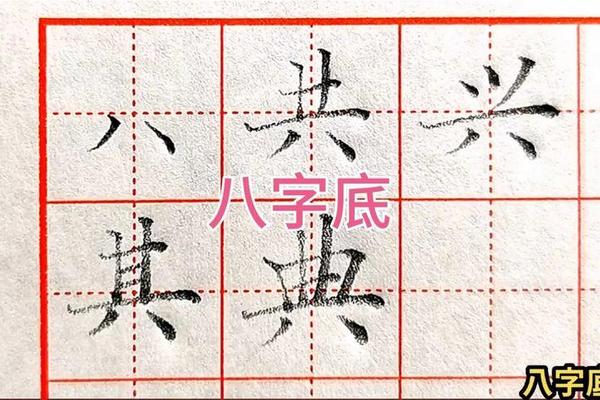 八 共 兴
八字底
其 典
八字底